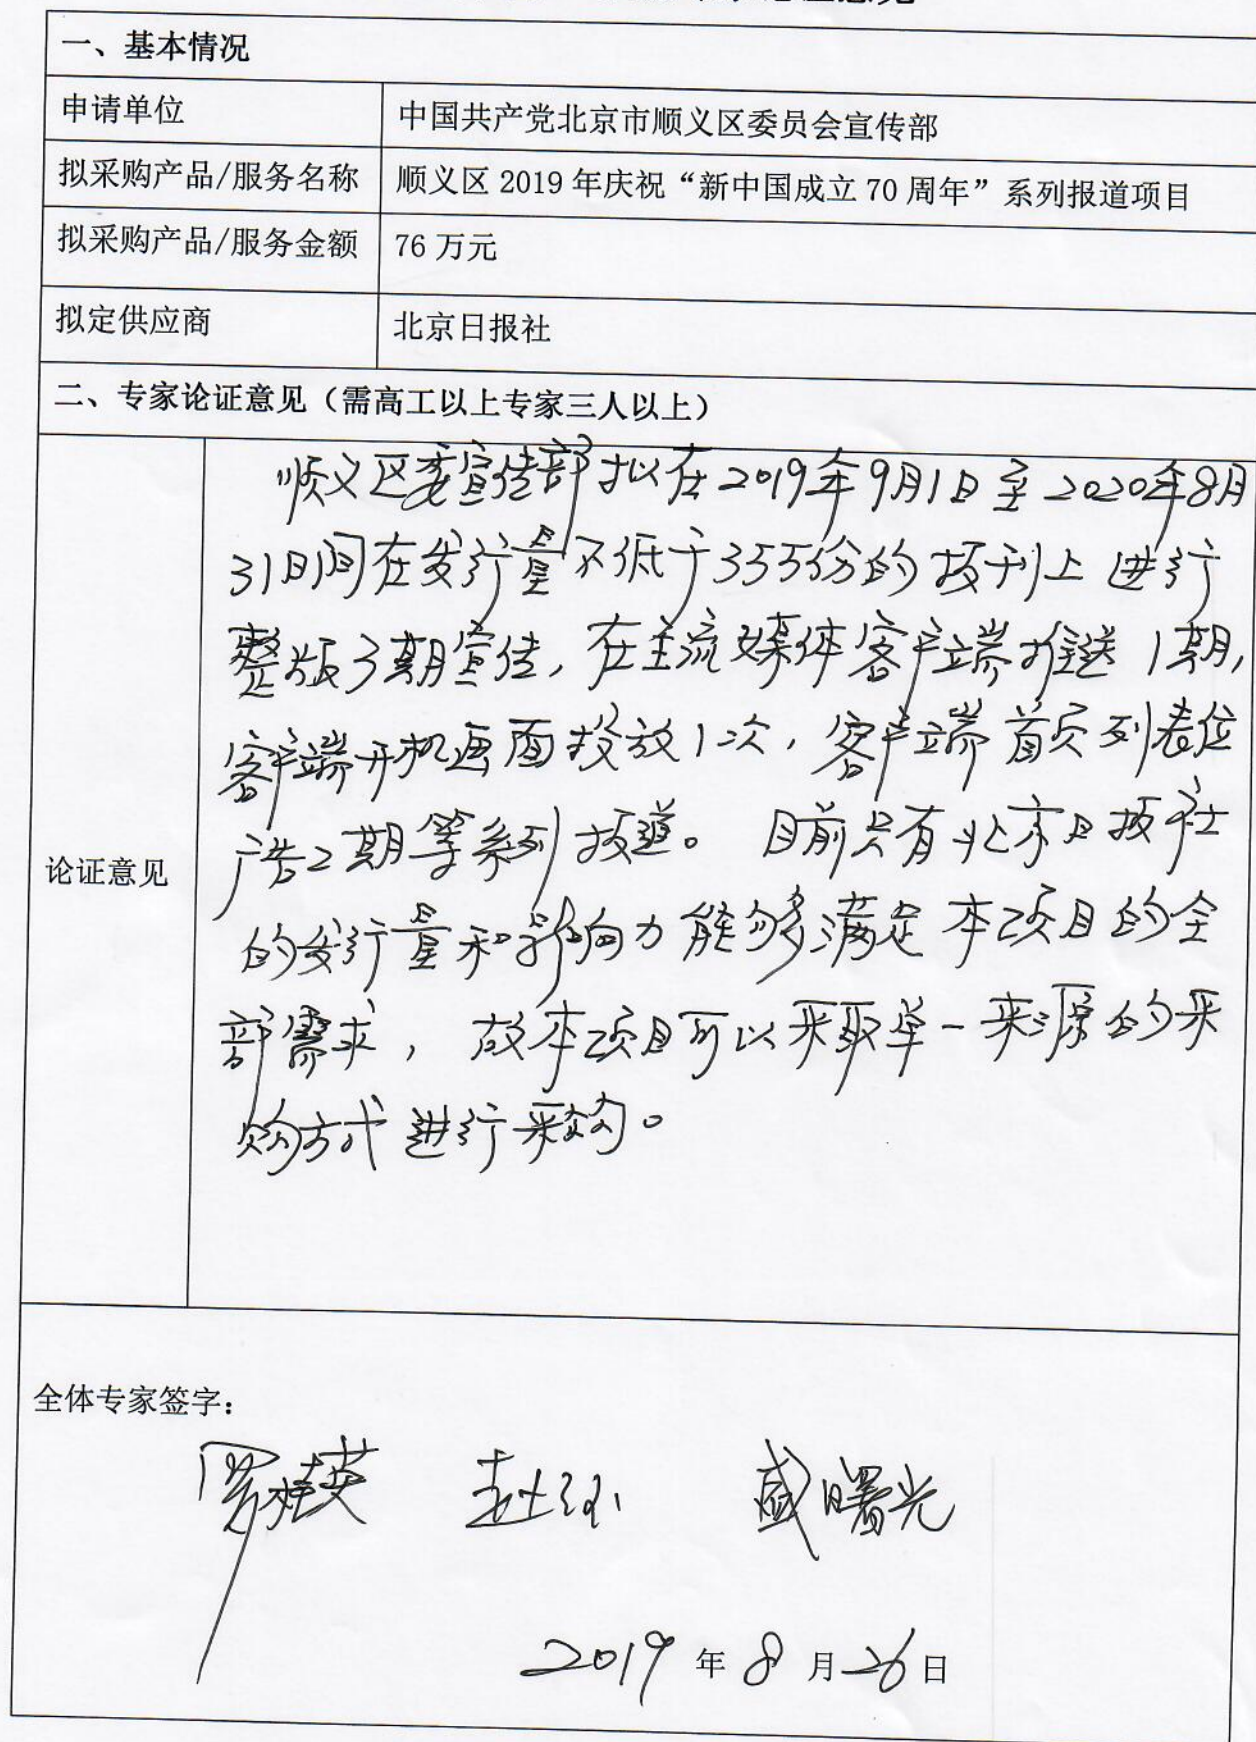 一、基本情况
申请单位 中国共产党北京市顺义区委员会宣传部
拟采购产品/服务名称 顺义区 2019 年庆祝“新中国成立 70 周年”系列报道项目
拟采购产品/服务金额 76 万元
拟定供应商 北京日报社
二、专家论证意见（需高工以上专家三人以上）
顺义区委宣传部拟在2019年9月1日至2020年8月
31日间在发行量不低于35万份的报刊上进行
整版3期宣传，在主流媒体客户端推送1期，
客户端开机画面投放1次，客户端首页列表位
广告2期等系列报道。目前只有北京日报社
论证意见
的发行量和影响力能够满足本项目的全
部需求，故本项目可以采取单一来源的采
购方式进行采购。
全体专家签字：
罗桂英 盛曙光
2019 年 8 月 26 日